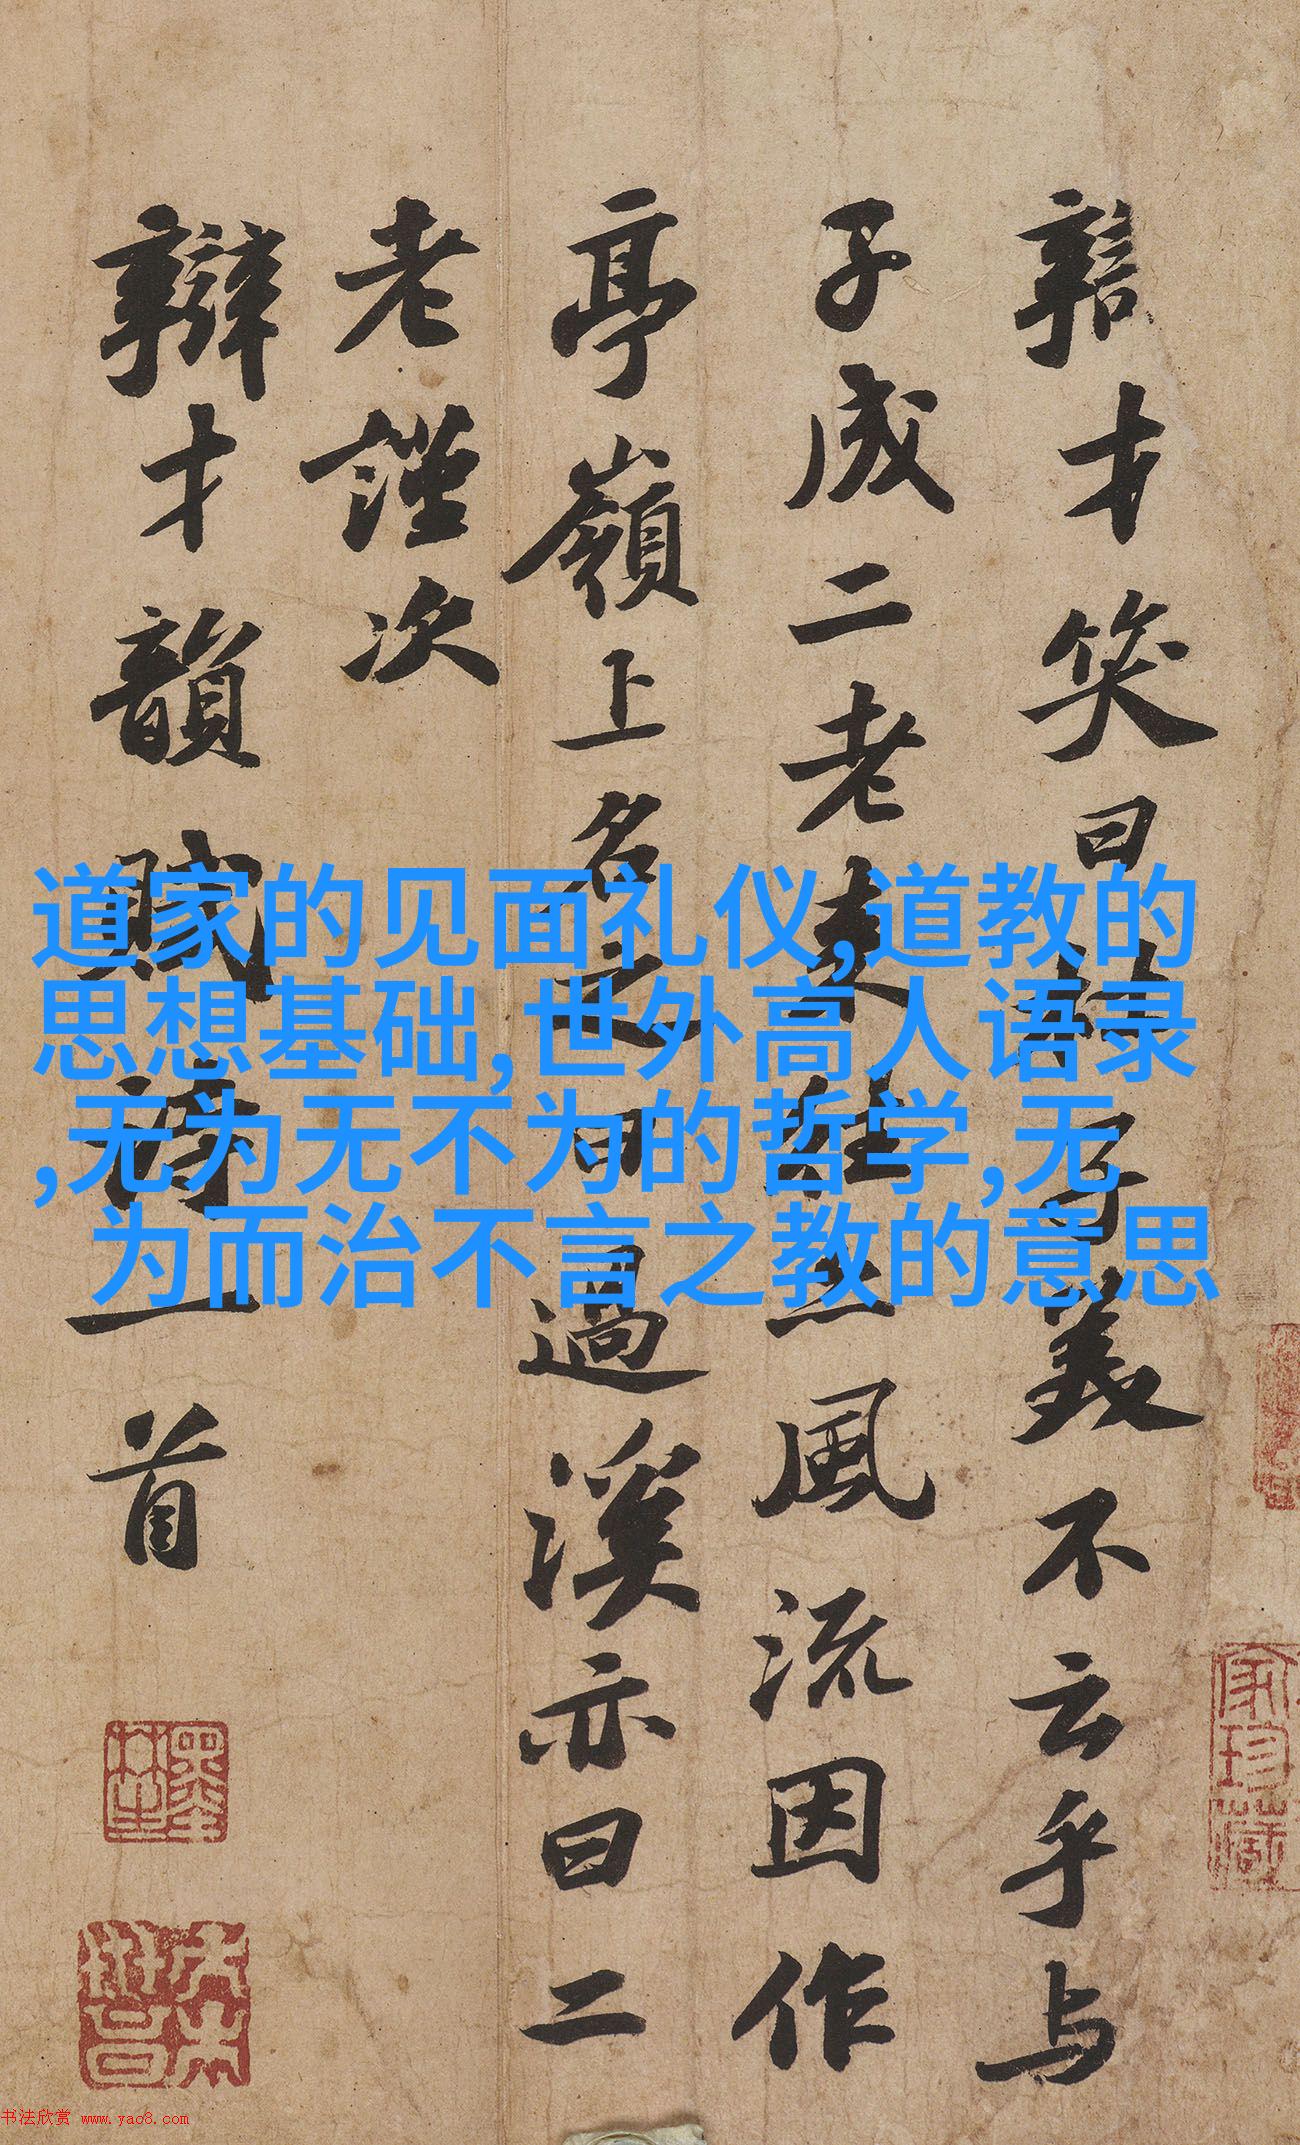 辯才笑曰杜子美不云乎与
子成二老來往亦風流因作
亭嶺上名之曰過溪亦曰二
老謹次
辯才韻賦詩一首
道家的见面礼仪,道教的
思想基础,世外高人语录
,无为无不为的哲学,无
为而治不言之教的意思
家珍藏
书法欣赏 www.yac8.com